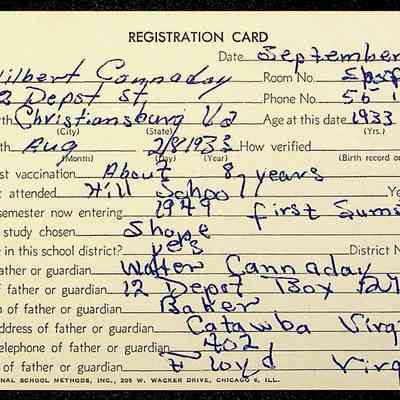 REGISTRATION CARD
Date September
ilbert Cannaday Room No.
2 Depot St Phone No. 56
th Christiansburg Va Age at this date 1933
(City) (State) (Yrs.)
th Aug 2/8/1933 How verified
(Month) (Day) (Year) (Birth record or
st vaccination. About 8 years
t attended Hill School Ye
semester now entering 1949 first Sums
study chosen Shope
e in this school district? yes District N
ather or guardian Walter Cannaday
f father or guardian 12 Depot Box
n of father or guardian Baker
ddress of father or guardian Catawba Virg
elephone of father or guardian 402
of father or guardian Floyd Virg
NAL SCHOOL METHODS, INC., 205 W. WACKER DRIVE, CHICAGO 6, ILL.